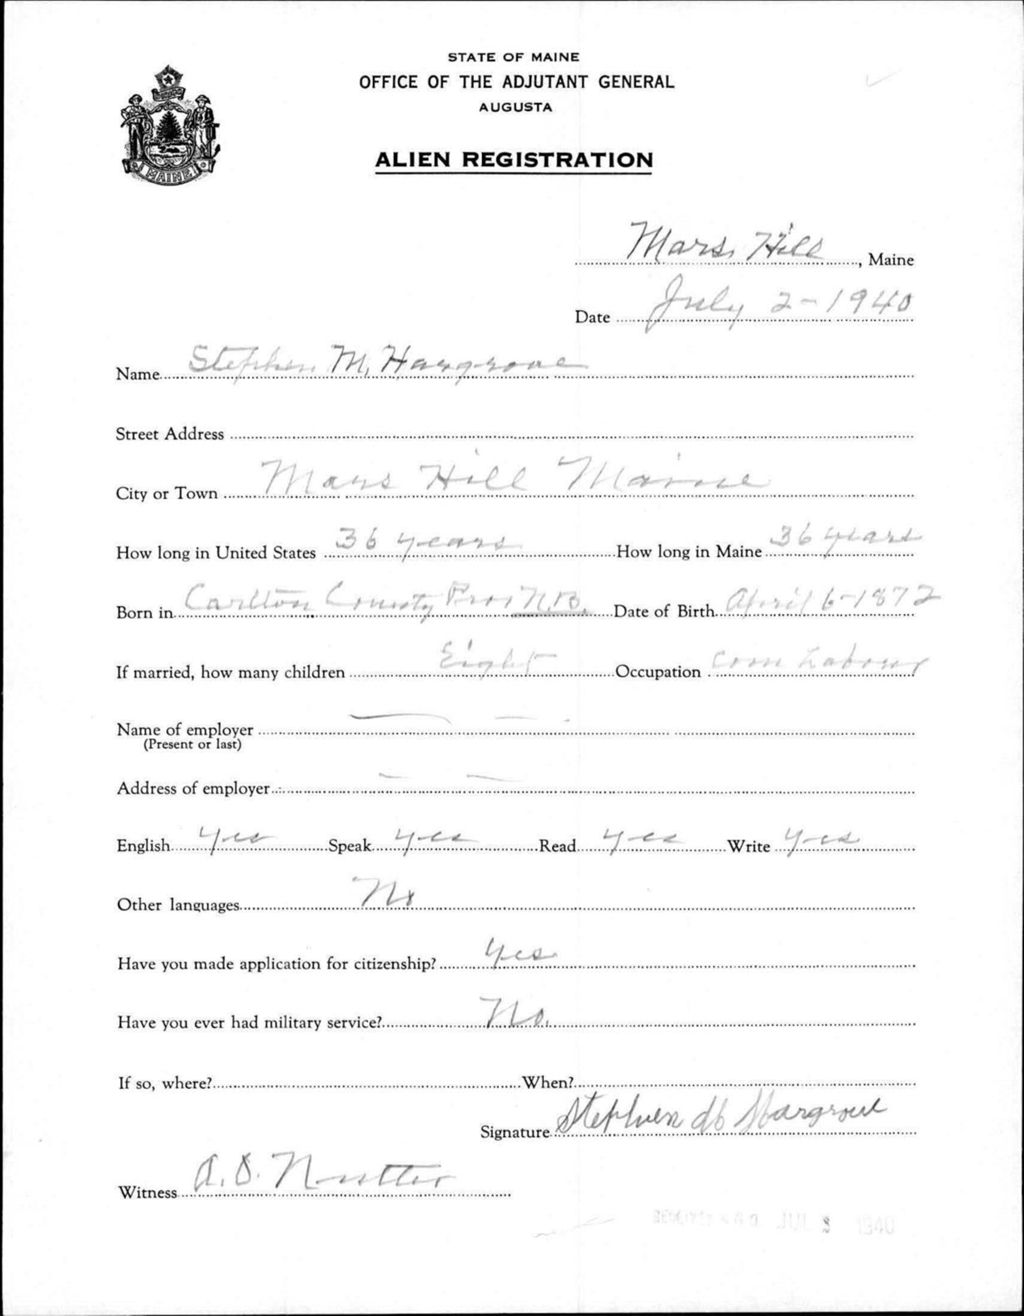 STATE OF MAINE
OFFICE OF THE ADJUTANT GENERAL
AUGUSTA
MAINE
ALIEN REGISTRATION
Mars Hill, Maine
Date July 2-1940
Name Stephen M, Hargrove
Street Address
City or Town Mars Hill Maine
How long in United States 36 years How long in Maine 36 years
Born in Carlton County Prov N.B. Date of Birth April 6-1872
If married, how many children Eight Occupation Com Labour
Name of employer
(Present or last)
Address of employer
English yes Speak yes Read yes Write yes
Other languages No
Have you made application for citizenship? Yes
Have you ever had military service? No.
If so, where? When?
Signature Stephen M Hargrove
Witness A. D. Nutter
JUL 3 1940